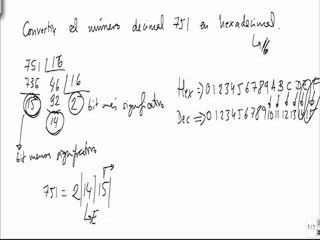 Convertir el número decimal 751 en hexadecimal.
16
751 16
736 46 16
15 32 2 bit más significativo
14
Hex => 0 1 2 3 4 5 6 7 8 9 A B C D E F
Dec => 0 1 2 3 4 5 6 7 8 9 10 11 12 13 14 15
bit menos significativo
751 = 2 | 14 | 15 |
F
E
1/1